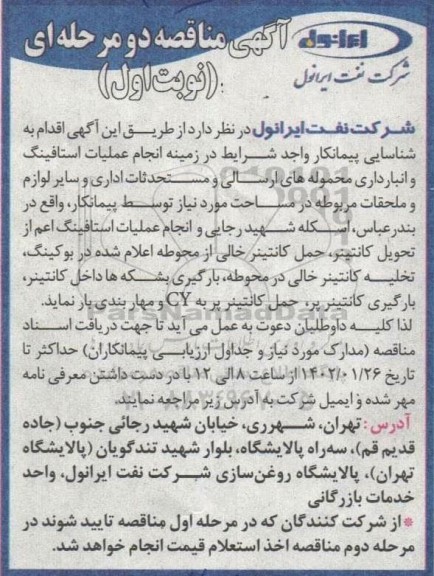 آگهی مناقصه دو مرحله ای
(نوبت اول)
ایرانول
شرکت نفت ایرانول
شرکت نفت ایرانول در نظر دارد از طریق این آگهی اقدام به
شناسایی پیمانکار واجد شرایط در زمینه انجام عملیات استافینگ
و انبارداری محموله های ارسالی و مستحدثات اداری و سایر لوازم
و ملحقات مربوطه در مساحت مورد نیاز توسط پیمانکار، واقع در
بندرعباس، اسکله شهید رجایی و انجام عملیات استافینگ اعم از
تحویل کانتینر، حمل کانتینر خالی از محوطه اعلام شده در بوکینگ،
تخلیه کانتینر خالی در محوطه، بارگیری بشکه ها داخل کانتینر،
بارگیری کانتینر پر، حمل کانتینر پر به CY و مهار بندی بار نماید.
لذا کلیه داوطلبان دعوت به عمل می آید تا جهت دریافت اسناد
مناقصه (مدارک مورد نیاز و جداول ارزیابی پیمانکاران) حداکثر تا
تاریخ ۱۴۰۲/۰۱/۲۶ از ساعت ۸ الی ۱۲ با در دست داشتن معرفی نامه
مهر شده و ایمیل شرکت به آدرس زیر مراجعه نمایند.
آدرس: تهران، شهرری، خیابان شهید رجائی جنوب (جاده
قدیم قم)، سه‌راه پالایشگاه، بلوار شهید تندگویان (پالایشگاه
تهران)، پالایشگاه روغن‌سازی شرکت نفت ایرانول، واحد
خدمات بازرگانی
*از شرکت کنندگان که در مرحله اول مناقصه تایید شوند در
مرحله دوم مناقصه اخذ استعلام قیمت انجام خواهد شد.
ParsNamadData